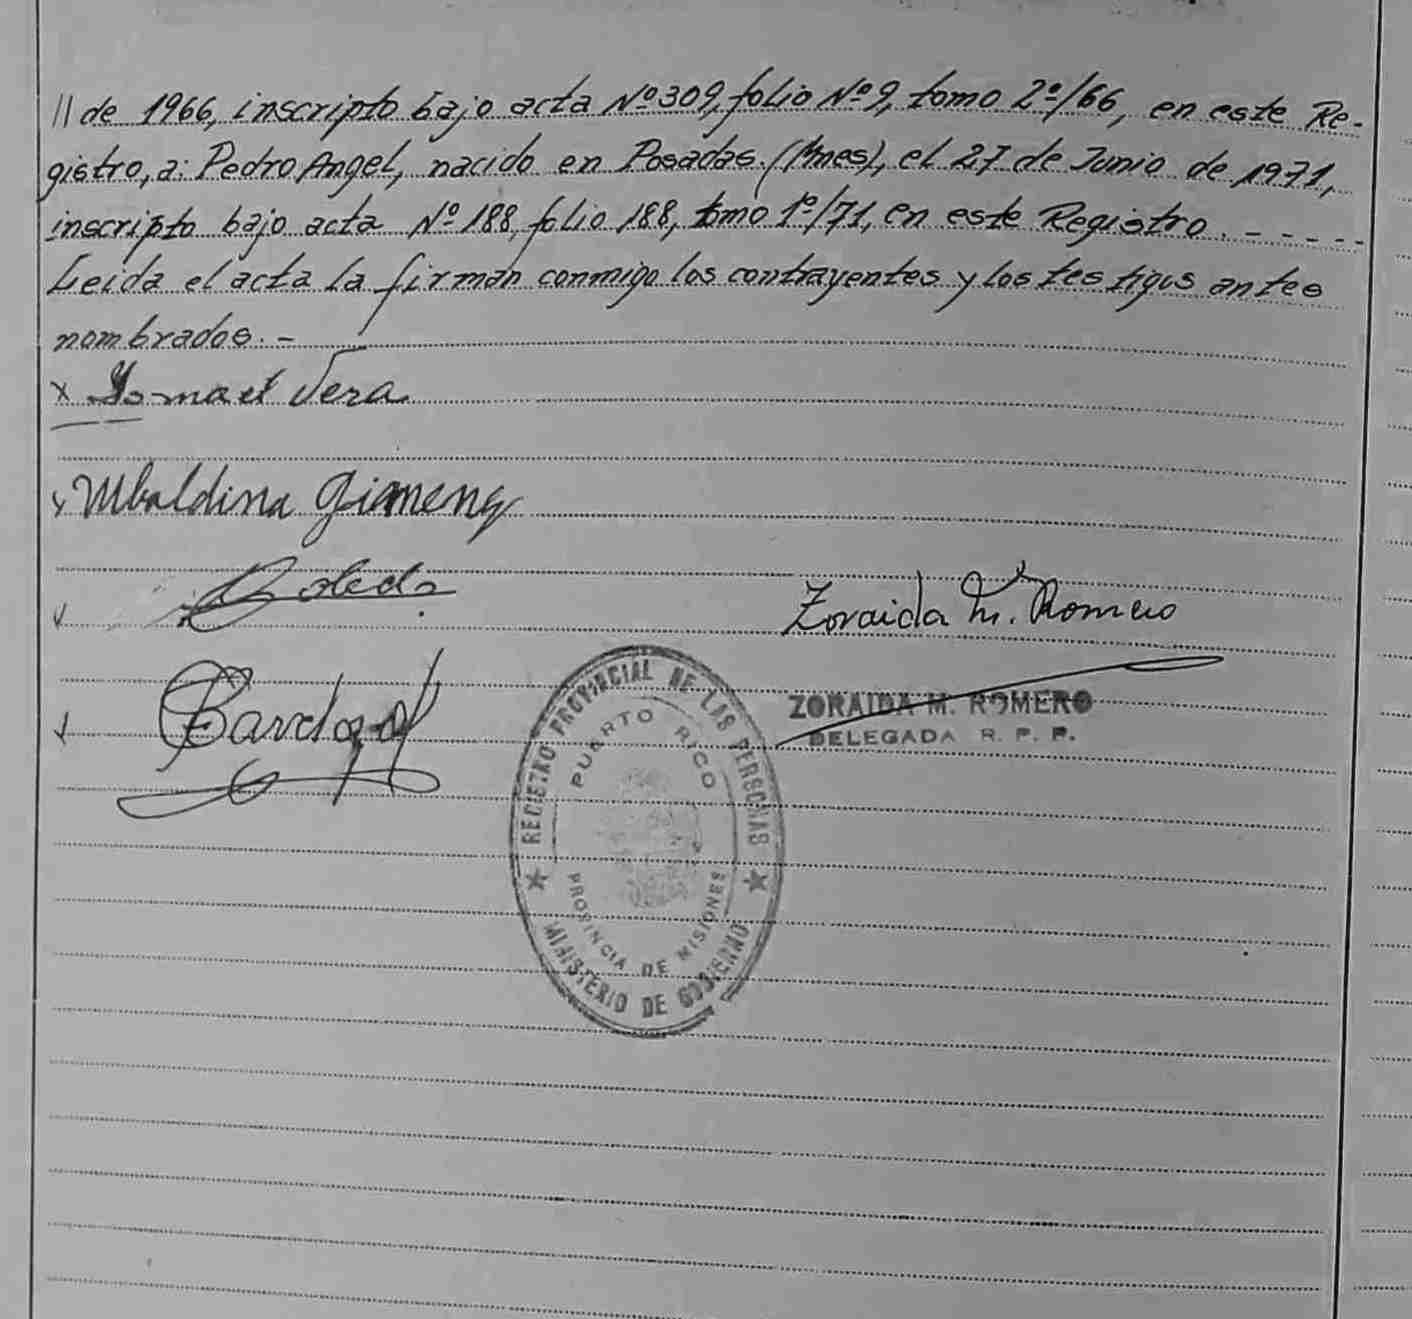 // de 1966, inscripto bajo acta Nº 309, folio Nº 9, tomo 2º/66, en este Re-
gistro, a: Pedro Angel, nacido en Posadas (Mnes), el 27 de Junio de 1971,
inscripto bajo acta Nº 188, folio 188, tomo 1º/71, en este Registro. - - - - -
Leida el acta la firman conmigo los contrayentes y los testigos antes
nombrados. -
x Ysmael Vera
x Ubaldina Gimenez
Zoraida M. Romero
ZORAIDA M. ROMERO
DELEGADA R. P. P.
REGISTRO PROVINCIAL DE LAS PERSONAS
PUERTO RICO
PROVINCIA DE MISIONES
MINISTERIO DE GOBIERNO